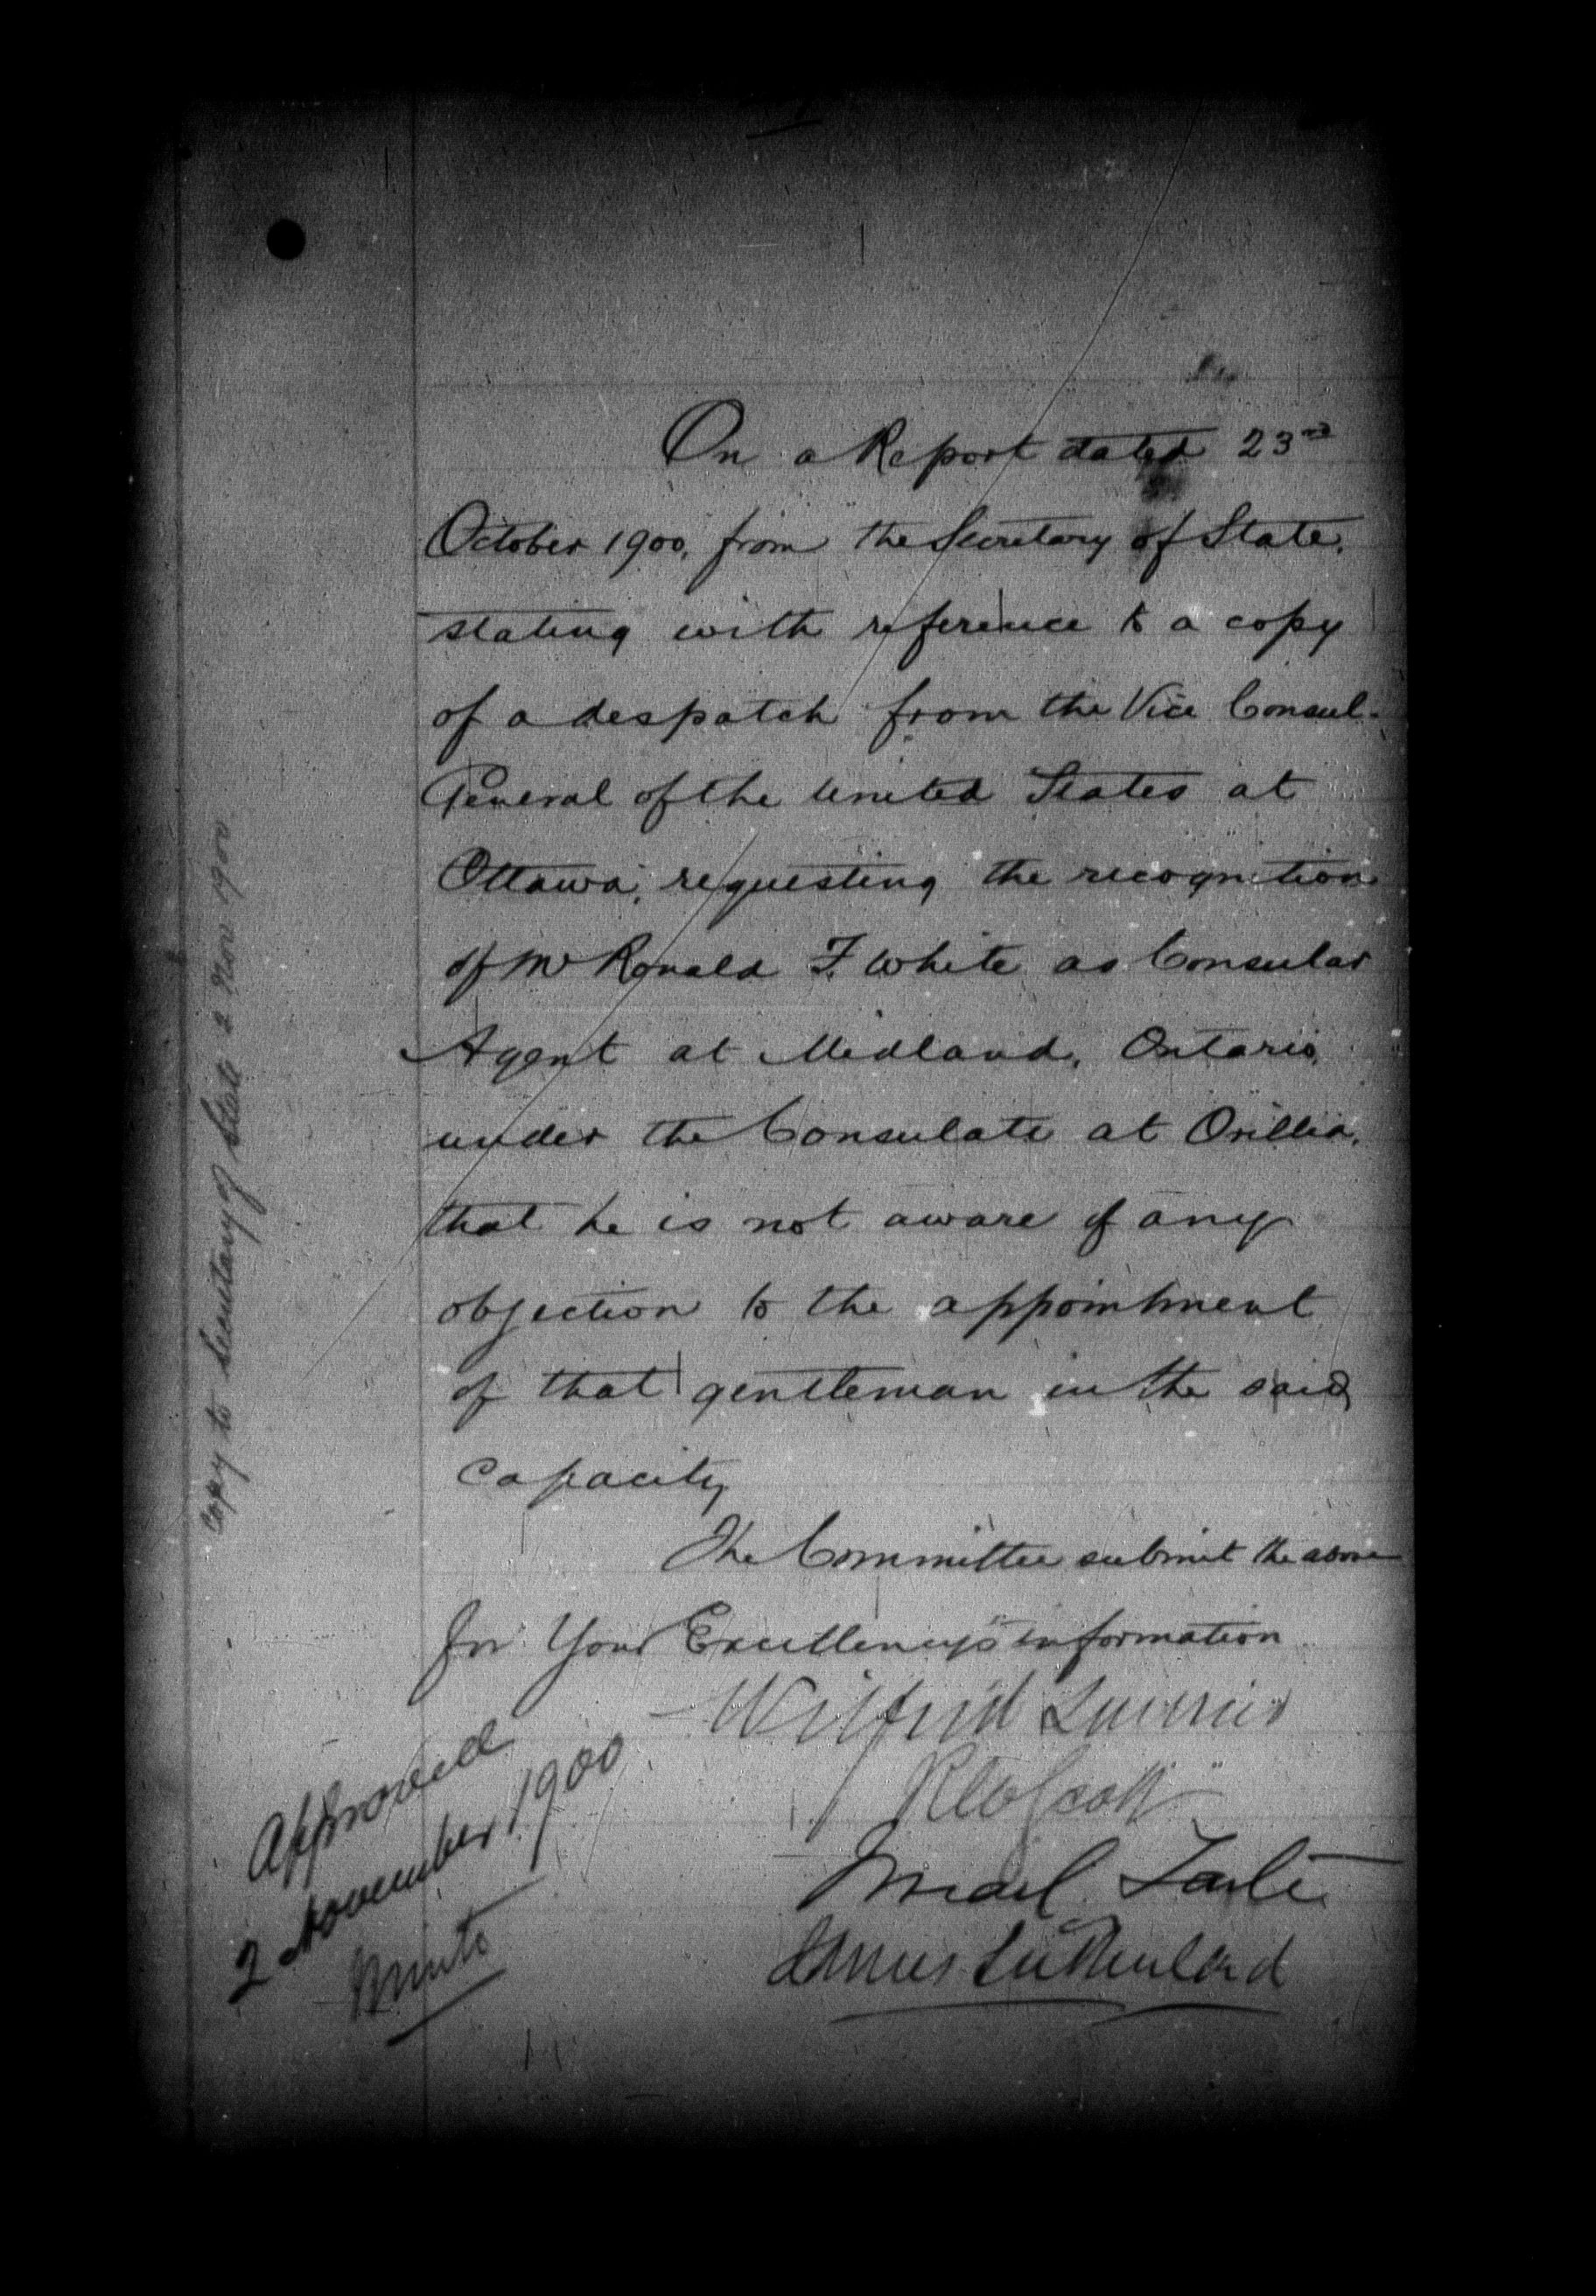 On a Report dated 23rd
October 1900, from the Secretary of State,
stating with reference to a copy
of a despatch from the Vice Consul-
General of the United States at
Ottawa, requesting the recognition
of Mr Ronald F. White as Consular
Agent at Midland, Ontario,
under the Consulate at Orillia,
that he is not aware of any
objection to the appointment
of that gentleman in the said
capacity
The Committee submit the above
for Your Excellency's information
Wilfrid Laurier
R W Scott
J Israel Tarte
James Sutherland
Approved
2 November 1900
Minto
Copy to Secretary of State 2 Nov 1900